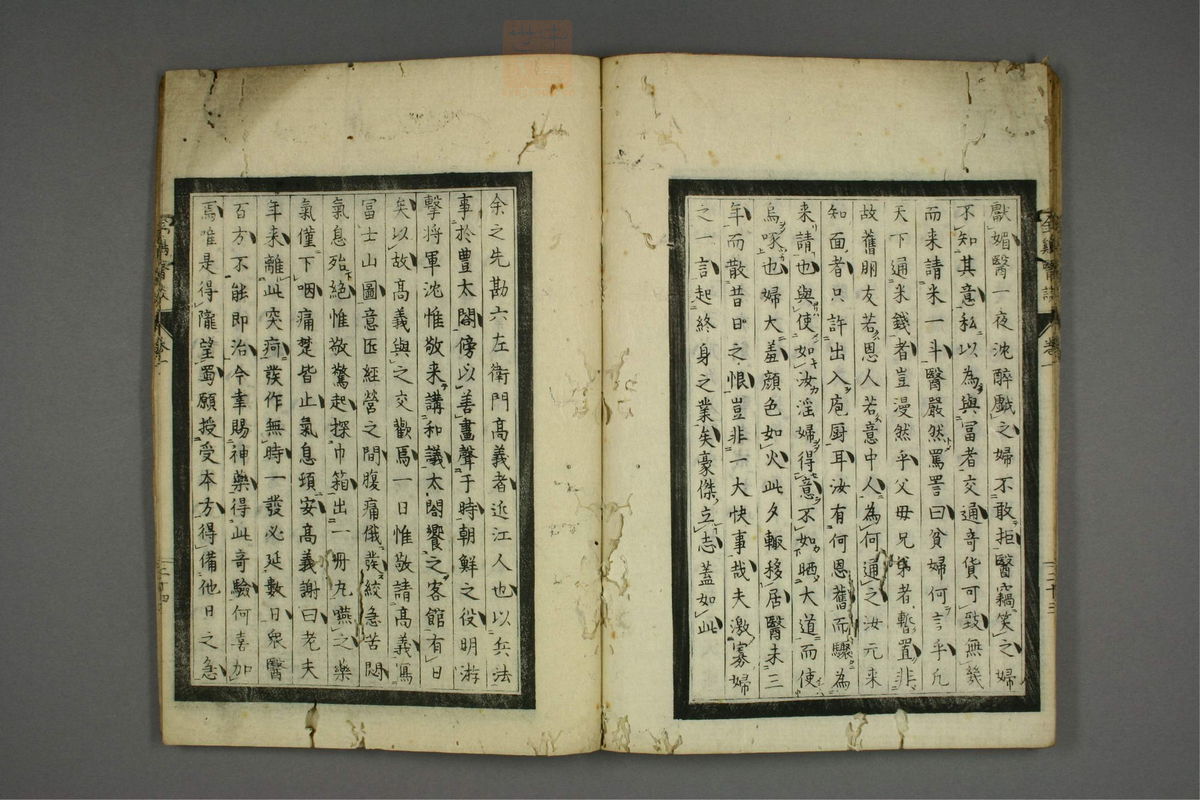 獻媚醫一夜沈醉戲之婦不敢拒醫竊笑之婦
不知其意私以為與冨者交通奇貨可致無幾
而来請米一斗醫嚴然罵詈曰貧婦何言乎凡
天下通米錢者豈漫然乎父母兄弟者暫置非
故舊朋友若恩人若意中人為何通之汝元来
知面者只許出入庖厨耳汝有何恩舊而驟為
来請也與使如汝淫婦得意不如晒大道而使
烏啄也婦大羞顔色如火此夕輙移居醫未三
年而散昔日之恨豈非一大快事哉夫激寡婦
之一言起終身之業矣豪傑立志蓋如此
三十三
余之先勘六左衛門高義者近江人也以兵法
事於豊太閤傍以善畫聲于時朝鮮之役明游
撃将軍沈惟敬来講和議太閤饗之客館有日
矣以故高義與之交歡焉一日惟敬請高義寫
冨士山圖意匠經營之間腹痛俄發絞急苦悶
氣息殆絶惟敬驚起探巾箱出一冊丸嚥之藥
氣僅下咽痛楚皆止氣息頃安高義謝曰老夫
年来離此突痾發作無時一發必延數日衆醫
百方不能即治今幸賜神藥得此奇驗何喜加
焉唯是得隴望蜀願授受本方得備他日之急
三十四